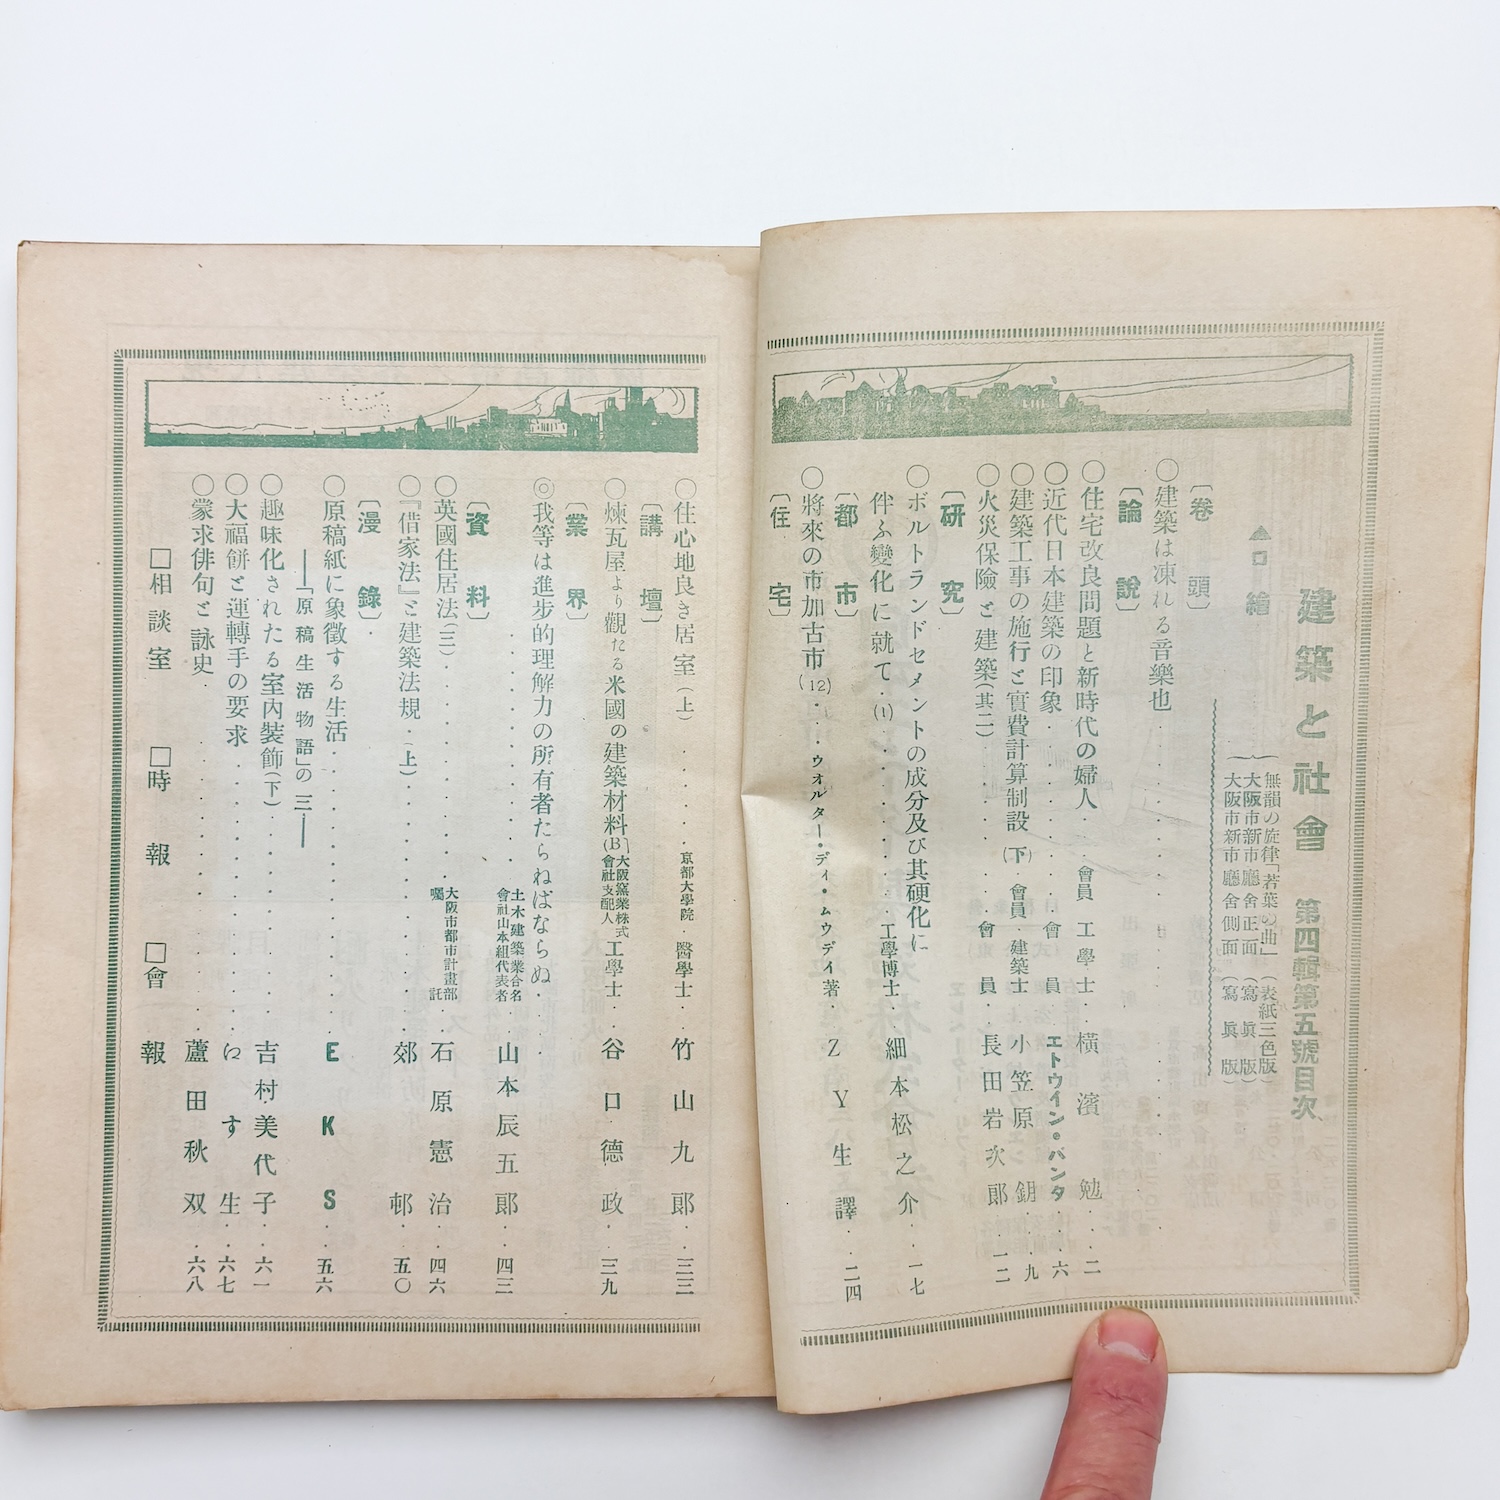 建築と社會 第四輯第五號目次
▲口繪
無韻の旋律「若葉の曲」(表紙三色版)
大阪市新市廳舍正面(寫眞版)
大阪市新市廳舍側面(寫眞版)
〔卷頭〕
○建築は凍れる音樂也
〔論說〕
○住宅改良問題と新時代の婦人 會員 工學士 橫濱勉 二
○近代日本建築の印象 會員 エトウイン・バンタ 六
○建築工事の施行と實費計算制設(下) 會員 建築士 小笠原鈅 九
○火災保險と建築(其二) 會員 長田岩次郞 一二
〔硏究〕
○ボルトランドセメントの成分及び其硬化に
伴ふ變化に就て(1) 工學博士 細本松之介 一七
〔都市〕
○將來の市加古市(12) ウオルター・ディ・ムウデイ著 ZY生譯 二四
〔住宅〕
○住心地良き居室(上) 京都大學院 醫學士 竹山九郞 三三
〔講壇〕
○煉瓦屋より觀たる米國の建築材料(B) 大阪窯業株式會社支配人 工學士 谷口德政 三九
〔業界〕
◎我等は進步的理解力の所有者たらねばならぬ
土木建築業合名會社山本組代表者 山本辰五郞 四三
〔資料〕
○英國住居法(三) 大阪市都市計畫部囑託 石原憲治 四六
○『借家法』と建築法規(上) 郊邨 五〇
〔漫錄〕
○原稿紙に象徵する生活 EKS 五六
――「原稿生活物語」の三――
○趣味化されたる室內裝飾(下) 吉村美代子 六一
○大福餠と運轉手の要求 ゐす生 六七
○蒙求俳句と詠史 蘆田秋双 六八
□相談室 □時報 □會報